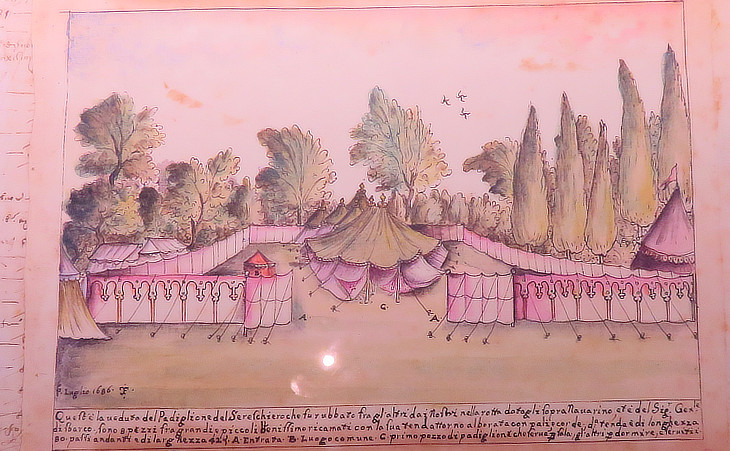 A
C
A
F. Luglio 1686. F.
Quest'è la veduta del Padiglione del Sereschiero che fu rubbato fragl'altri da i Nostri nella rotta datagli sopra Navarino, et è del Sig.r Gen.le
di sbarco. sono 8 pezzi fra grandi e piccoli bonissimo ricamati con la sua tenda attorno alborata con pali e corde, d.ª tenda è di longhezza
80. passi andanti e di larghezza 42½. A. Entrata. B. Luogo comune. C. primo pezzo di padiglione che serve gl'altri p dormire, e servitij